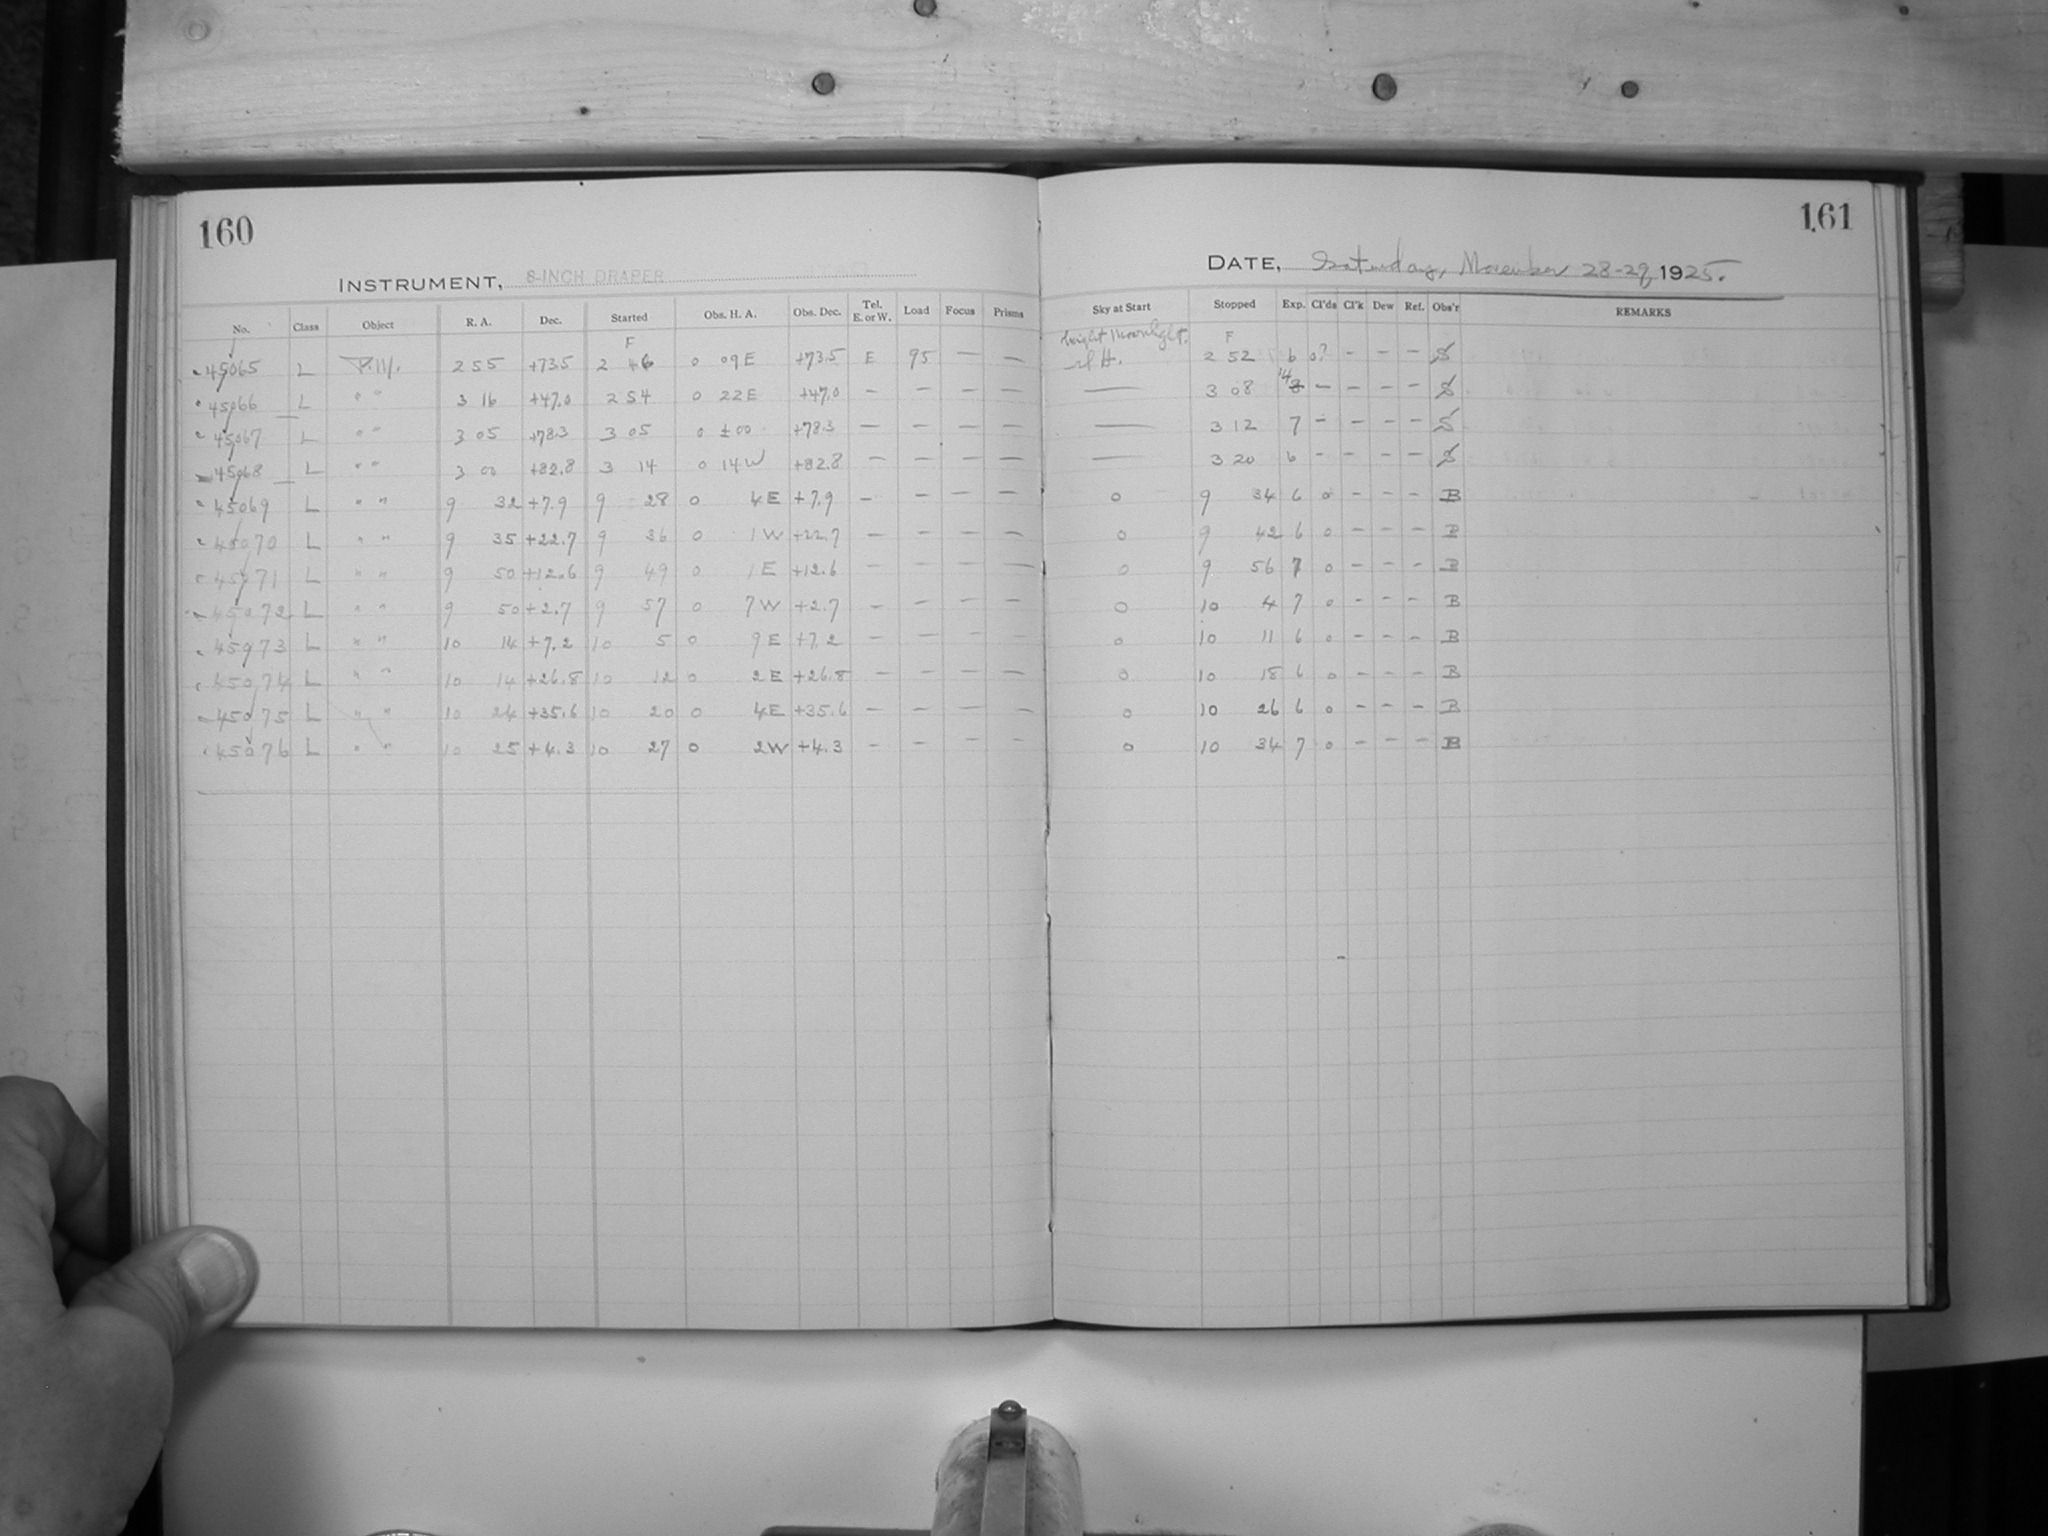 160
INSTRUMENT, 8-INCH DRAPER
No. Class Object R. A. Dec. Started Obs. H. A. Obs. Dec. Tel. E. or W. Load Focus Prisms
F
45065 L 2 55 +73.5 2 46 0 09 E +73.5 E 95 — —
45066 L " " 3 16 +47.0 2 54 0 22 E +47.0 — — — —
45067 L " " 3 05 +78.3 3 05 0 ±00 +78.3 — — — —
45068 L " " 3 00 +82.8 3 14 0 14 W +82.8 — — — —
45069 L " " 9 32 +7.9 9 28 0 4 E +7.9 — — — —
45070 L " " 9 35 +22.7 9 36 0 1 W +22.7 — — — —
45071 L " " 9 50 +12.6 9 49 0 1 E +12.6 — — — —
45072 L " " 9 50 +2.7 9 57 0 7 W +2.7 — — — —
45073 L " " 10 14 +7.2 10 5 0 9 E +7.2 — — — —
45074 L " " 10 14 +26.8 10 12 0 2 E +26.8 — — — —
45075 L " " 10 24 +35.6 10 20 0 4 E +35.6 — — — —
45076 L " " 10 25 +4.3 10 27 0 2 W +4.3 — — — —
161
DATE, Saturday, November 28-29, 1925.
Sky at Start Stopped Exp. Cl'ds Cl'k Dew Ref. Obs'r REMARKS
bright Moonlight. F
2 52 6 0? — — — S
— 3 08 14 — — — — S
— 3 12 7 — — — — S
— 3 20 6 — — — — S
0 9 34 6 0 — — — B
0 9 42 6 0 — — — B
0 9 56 7 0 — — — B
0 10 4 7 0 — — — B
0 10 11 6 0 — — — B
0 10 18 6 0 — — — B
0 10 26 6 0 — — — B
0 10 34 7 0 — — — B